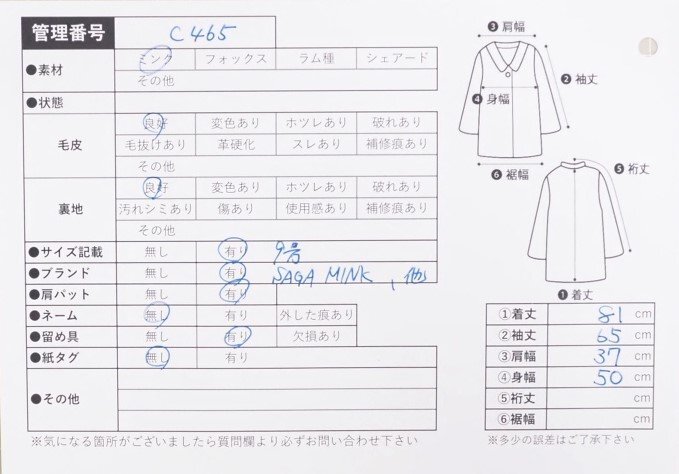 管理番号 C465
●素材 ミンク フォックス ラム種 シェアード
その他
●状態
毛皮 良好 変色あり ホツレあり 破れあり
毛抜けあり 革硬化 スレあり 補修痕あり
その他
裏地 良好 変色あり ホツレあり 破れあり
汚れシミあり 傷あり 使用感あり 補修痕あり
その他
●サイズ記載 無し 有り 9号
●ブランド 無し 有り SAGA MINK、他
●肩パット 無し 有り
●ネーム 無し 有り 外した痕あり
●留め具 無し 有り 欠損あり
●紙タグ 無し 有り
●その他
※気になる箇所がございましたら質問欄より必ずお問い合わせ下さい
❸肩幅
❷袖丈
❹身幅
❻裾幅
❺裄丈
❶着丈
①着丈 81 cm
②袖丈 65 cm
③肩幅 37 cm
④身幅 50 cm
⑤裄丈 cm
⑥裾幅 cm
※多少の誤差はご了承下さい